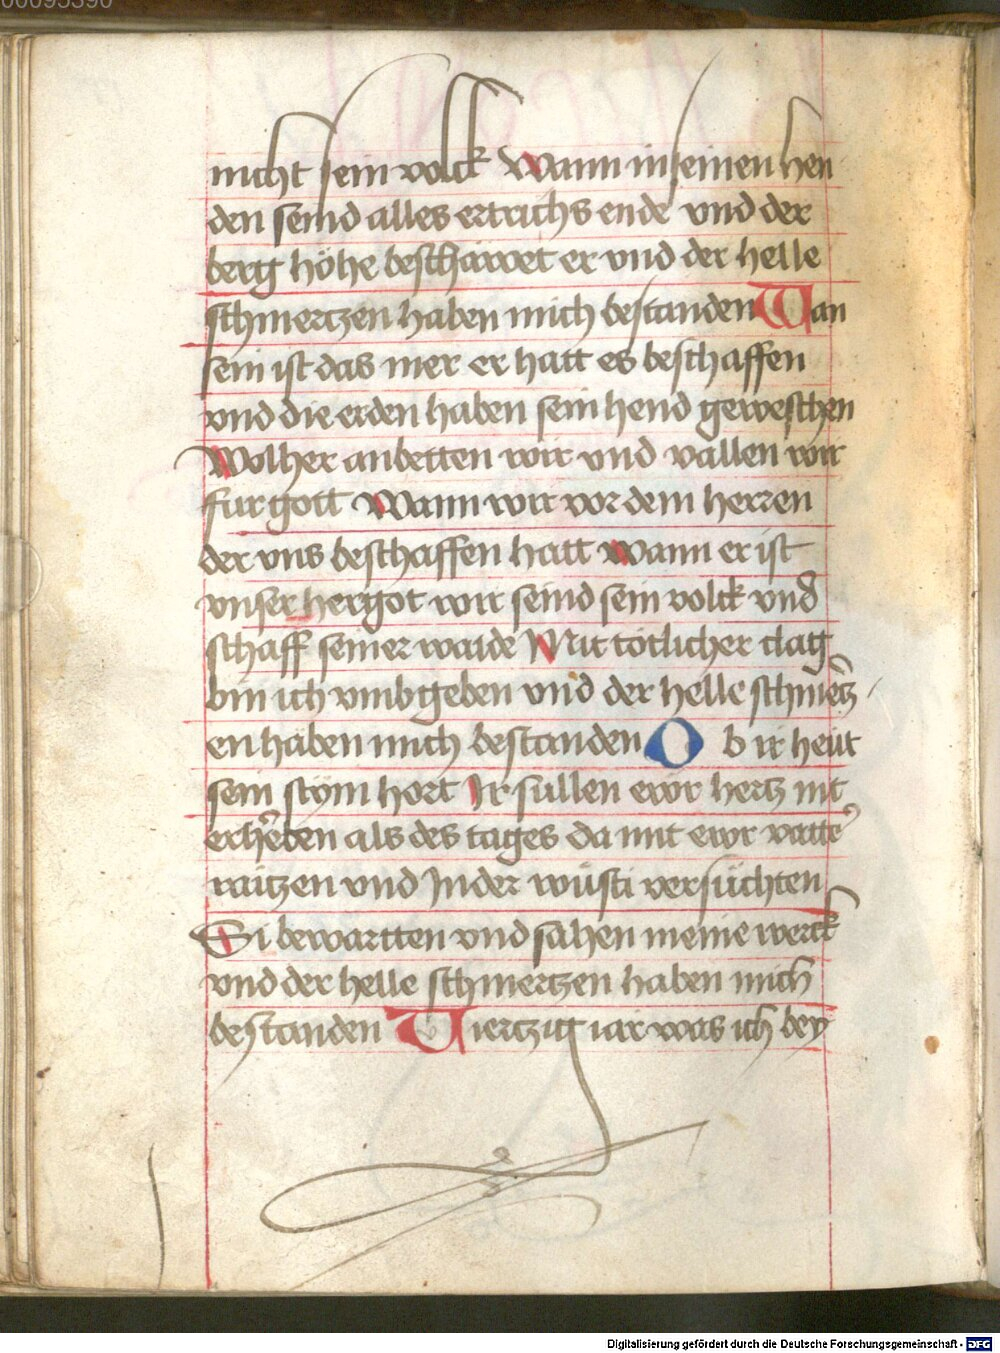 00095390
nicht sein volck Wann in seinen hen
den seind alles ertrichs ende vnd der
berg höhe beschawet er vnd der helle
schmerczen haben mich bestanden Wan
sein ist das mer er hatt es beschaffen
vnd die erden haben sein hend geweschen
Wolher anbetten wir vnd vallen wir
fur gott Wann wir vor dem herren
der vns beschaffen hatt wann er ist
vnser hergot wir seind sein volck vnd
schaff seiner waide Mit tötlicher clag
bin ich vmbgeben vnd der helle schmertz
en haben mich bestanden Ob ir heüt
sein stym hort Ir sullen ewr hertz nit
erheben als des tages da mit ewr vatter
raitzen vnd In der wüsti versüchten
Si bewartten vnd sahen meine werck
vnd der helle schmertzen haben mich
bestanden Viertzig iar was ich bey
Digitalisierung gefördert durch die Deutsche Forschungsgemeinschaft - DFG